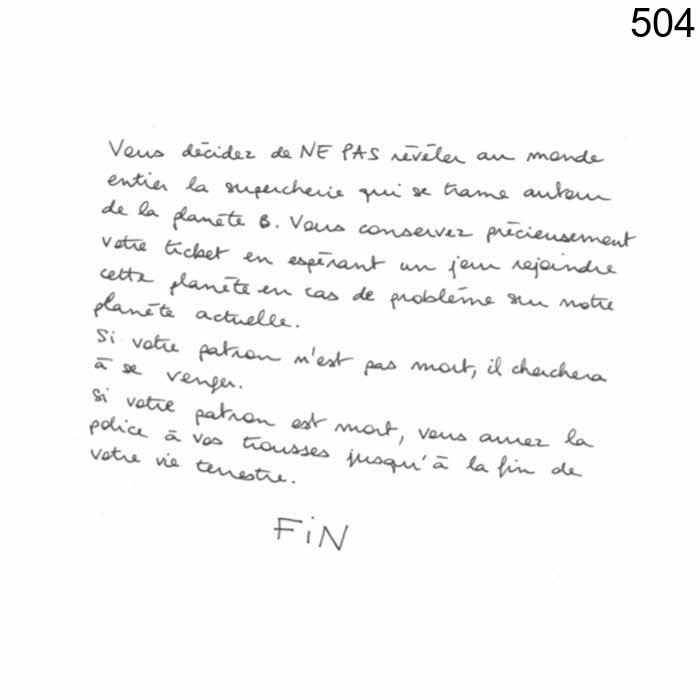 504
Vous décidez de NE PAS révéler au monde
entier la supercherie qui se trame autour
de la planète B. Vous conservez précieusement
votre ticket en espérant un jour rejoindre
cette planète en cas de problème sur notre
planète actuelle.
Si votre patron n'est pas mort, il cherchera
à se venger.
Si votre patron est mort, vous aurez la
police à vos trousses jusqu'à la fin de
votre vie terrestre.
FiN